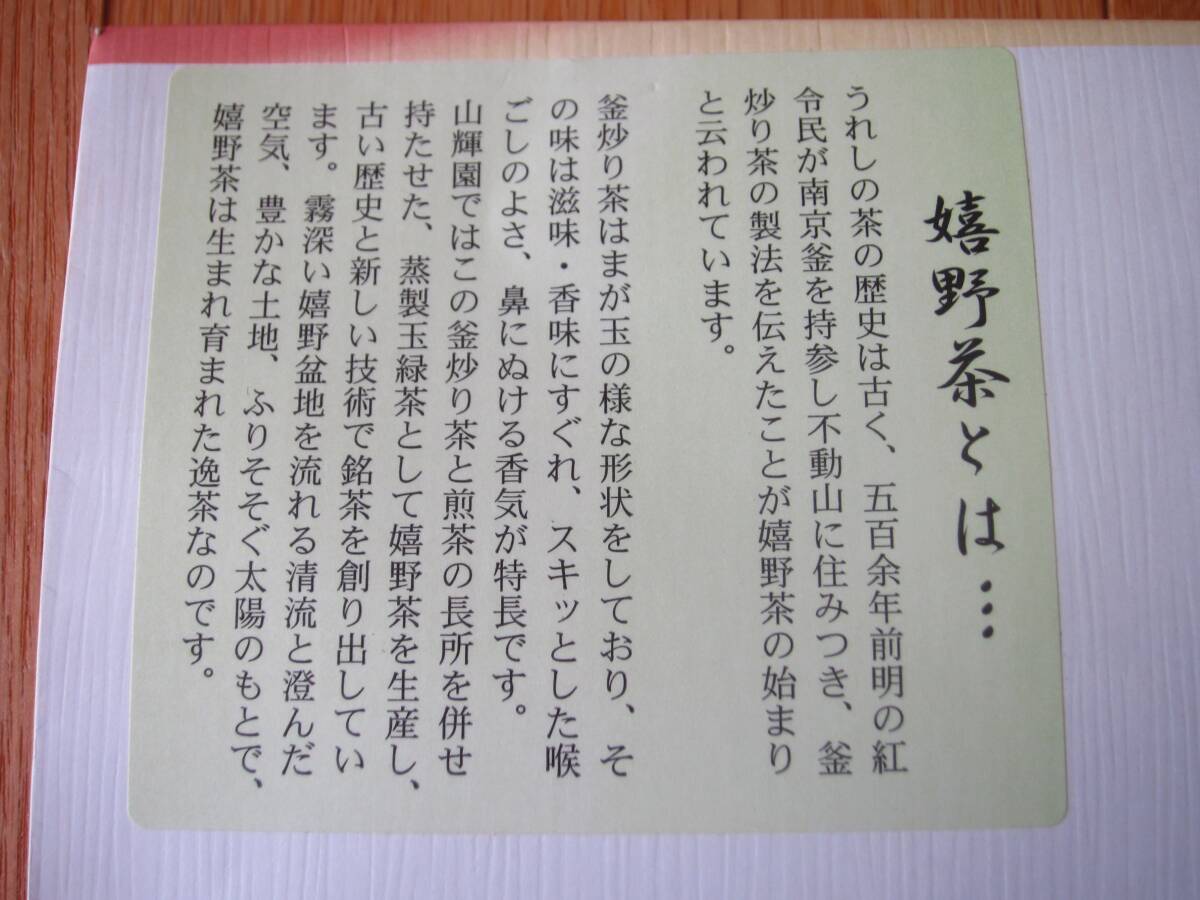 嬉野茶とは…
うれしの茶の歴史は古く、五百余年前明の紅
令民が南京釜を持参し不動山に住みつき、釜
炒り茶の製法を伝えたことが嬉野茶の始まり
と云われています。
釜炒り茶はまが玉の様な形状をしており、そ
の味は滋味・香味にすぐれ、スキッとした喉
ごしのよさ、鼻にぬける香気が特長です。
山輝園ではこの釜炒り茶と煎茶の長所を併せ
持たせた、蒸製玉緑茶として嬉野茶を生産し、
古い歴史と新しい技術で銘茶を創り出してい
ます。霧深い嬉野盆地を流れる清流と澄んだ
空気、豊かな土地、ふりそそぐ太陽のもとで、
嬉野茶は生まれ育まれた逸茶なのです。